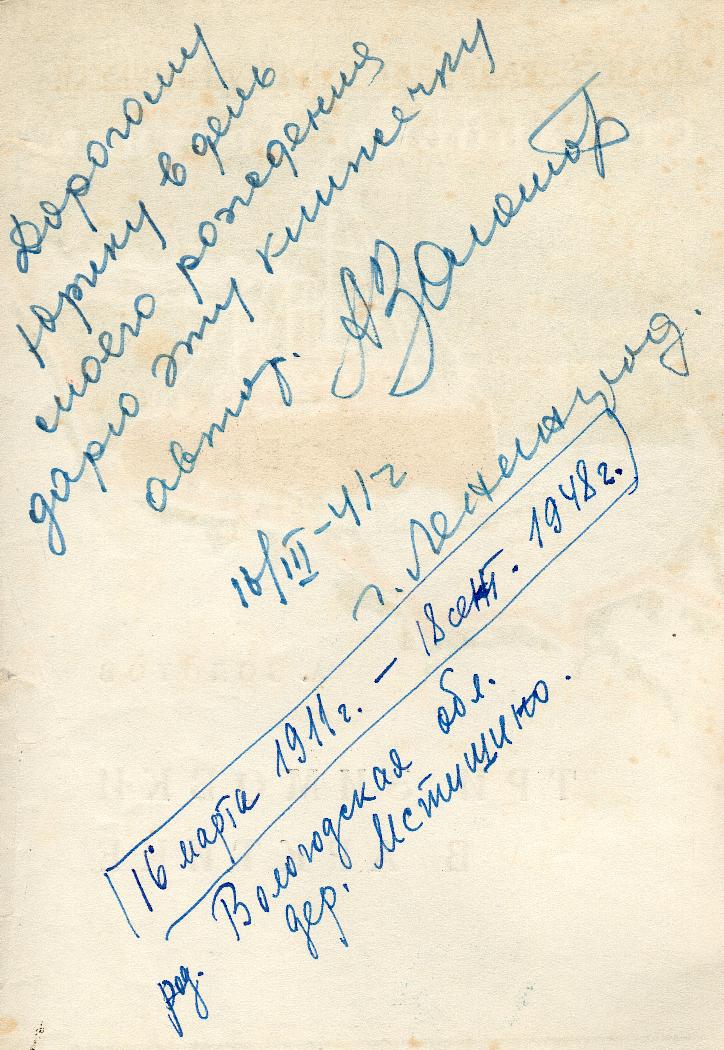 Дорогому
Юрику в день
своего рождения
дарю эту книжечку
автор. АЗолотов
16/III-41г
г. Ленинград.
16 марта 1911г. — 18 сент. 1948г.
род. Вологодская обл.
дер. Мстишино.